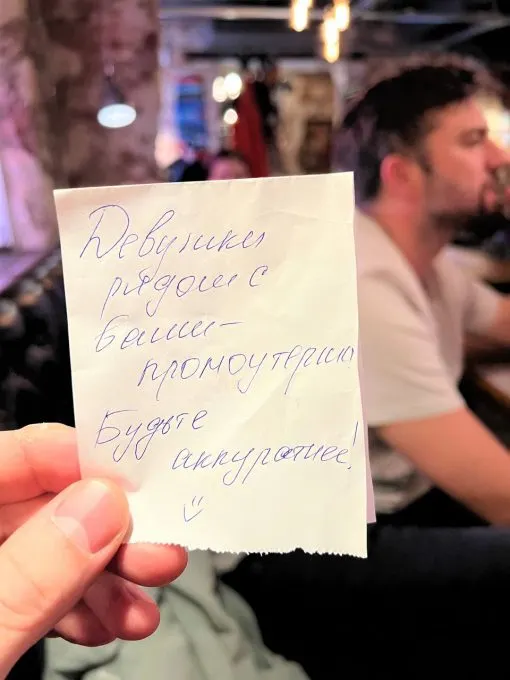 Девушки
рядом с
вами –
промоутерши
Будьте
аккуратнее!